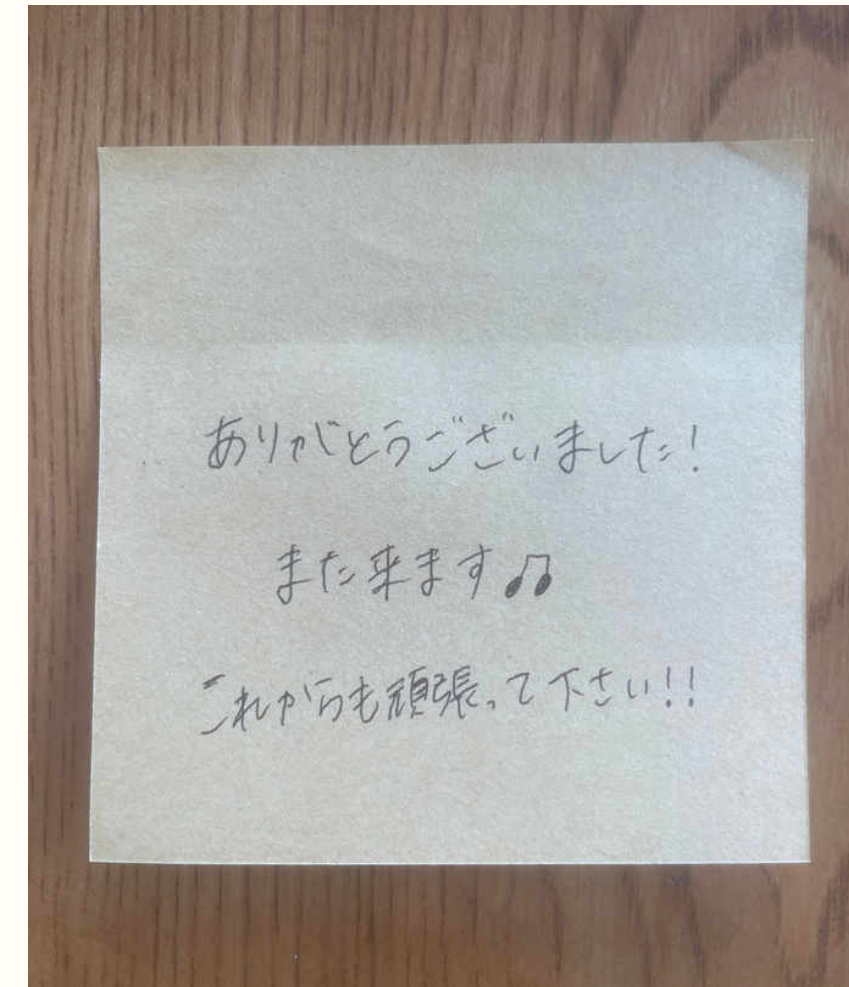 ありがとうございました！
また来ます♫
これからも頑張って下さい！！